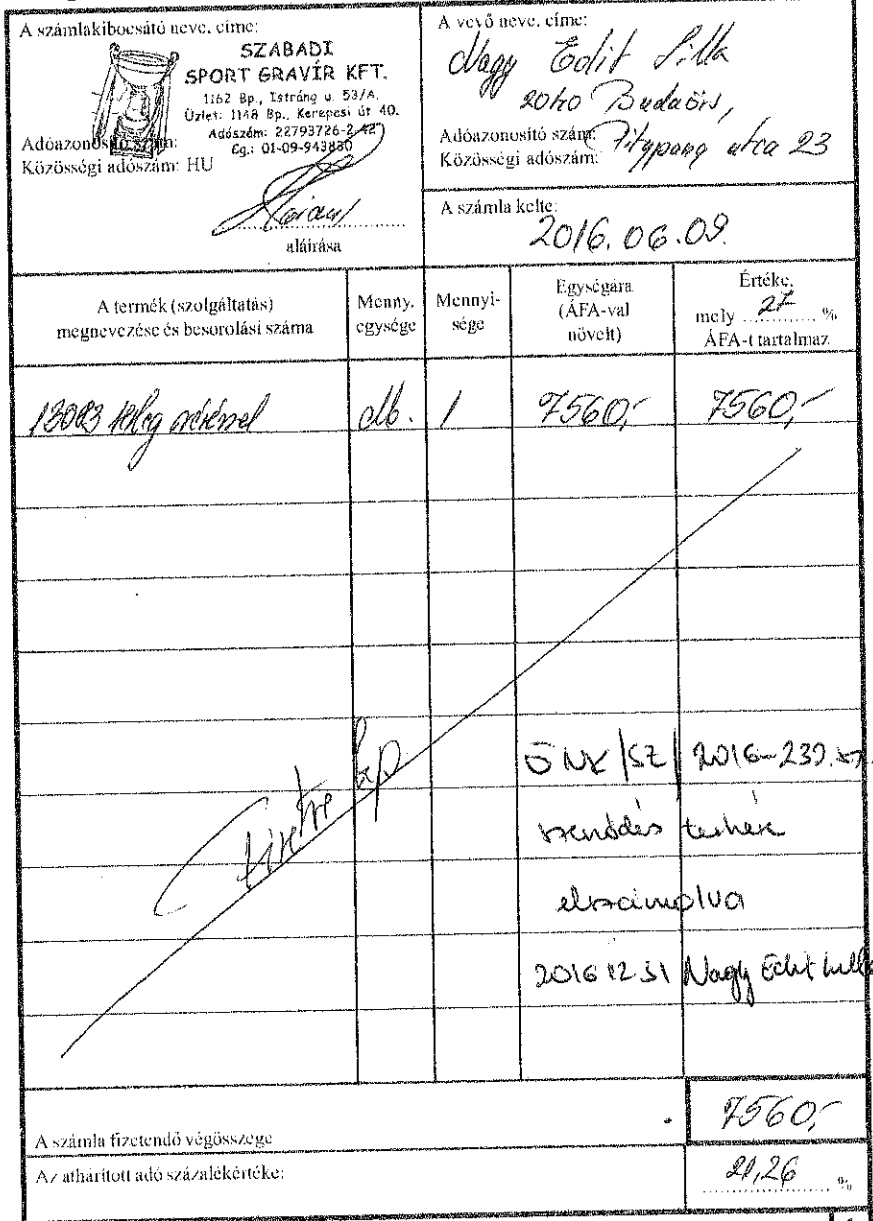 A számlakibocsátó neve, címe:
SZABADI
SPORT GRAVÍR KFT.
1162 Bp., Istráng u. 53/A.
Üzlet: 1148 Bp., Kerepesi út 40.
Adószám: 22793726-2-42
Cg.: 01-09-943830
Adóazonosító szám:
Közösségi adószám: HU
aláírása
A vevő neve, címe:
Nagy Edit Lilla
2040 Budaörs,
Adóazonosító szám:
Pitypang utca 23
Közösségi adószám:
A számla kelte:
2016.06.09.
A termék (szolgáltatás)
megnevezése és besorolási száma
Menny.
egysége
Mennyi-
sége
Egységára
(ÁFA-val
növelt)
Értéke,
mely 27 %
ÁFA-t tartalmaz
13083 db. 1 7560,- 7560,-
Fizetve kp
ÖNK/SZ/2016-239.
szerződés terhére
elszámolva
2016 12 31 Nagy Edit Lilla
A számla fizetendő végösszege 7560,-
Az áthárított adó százalékértéke: 21,26 %